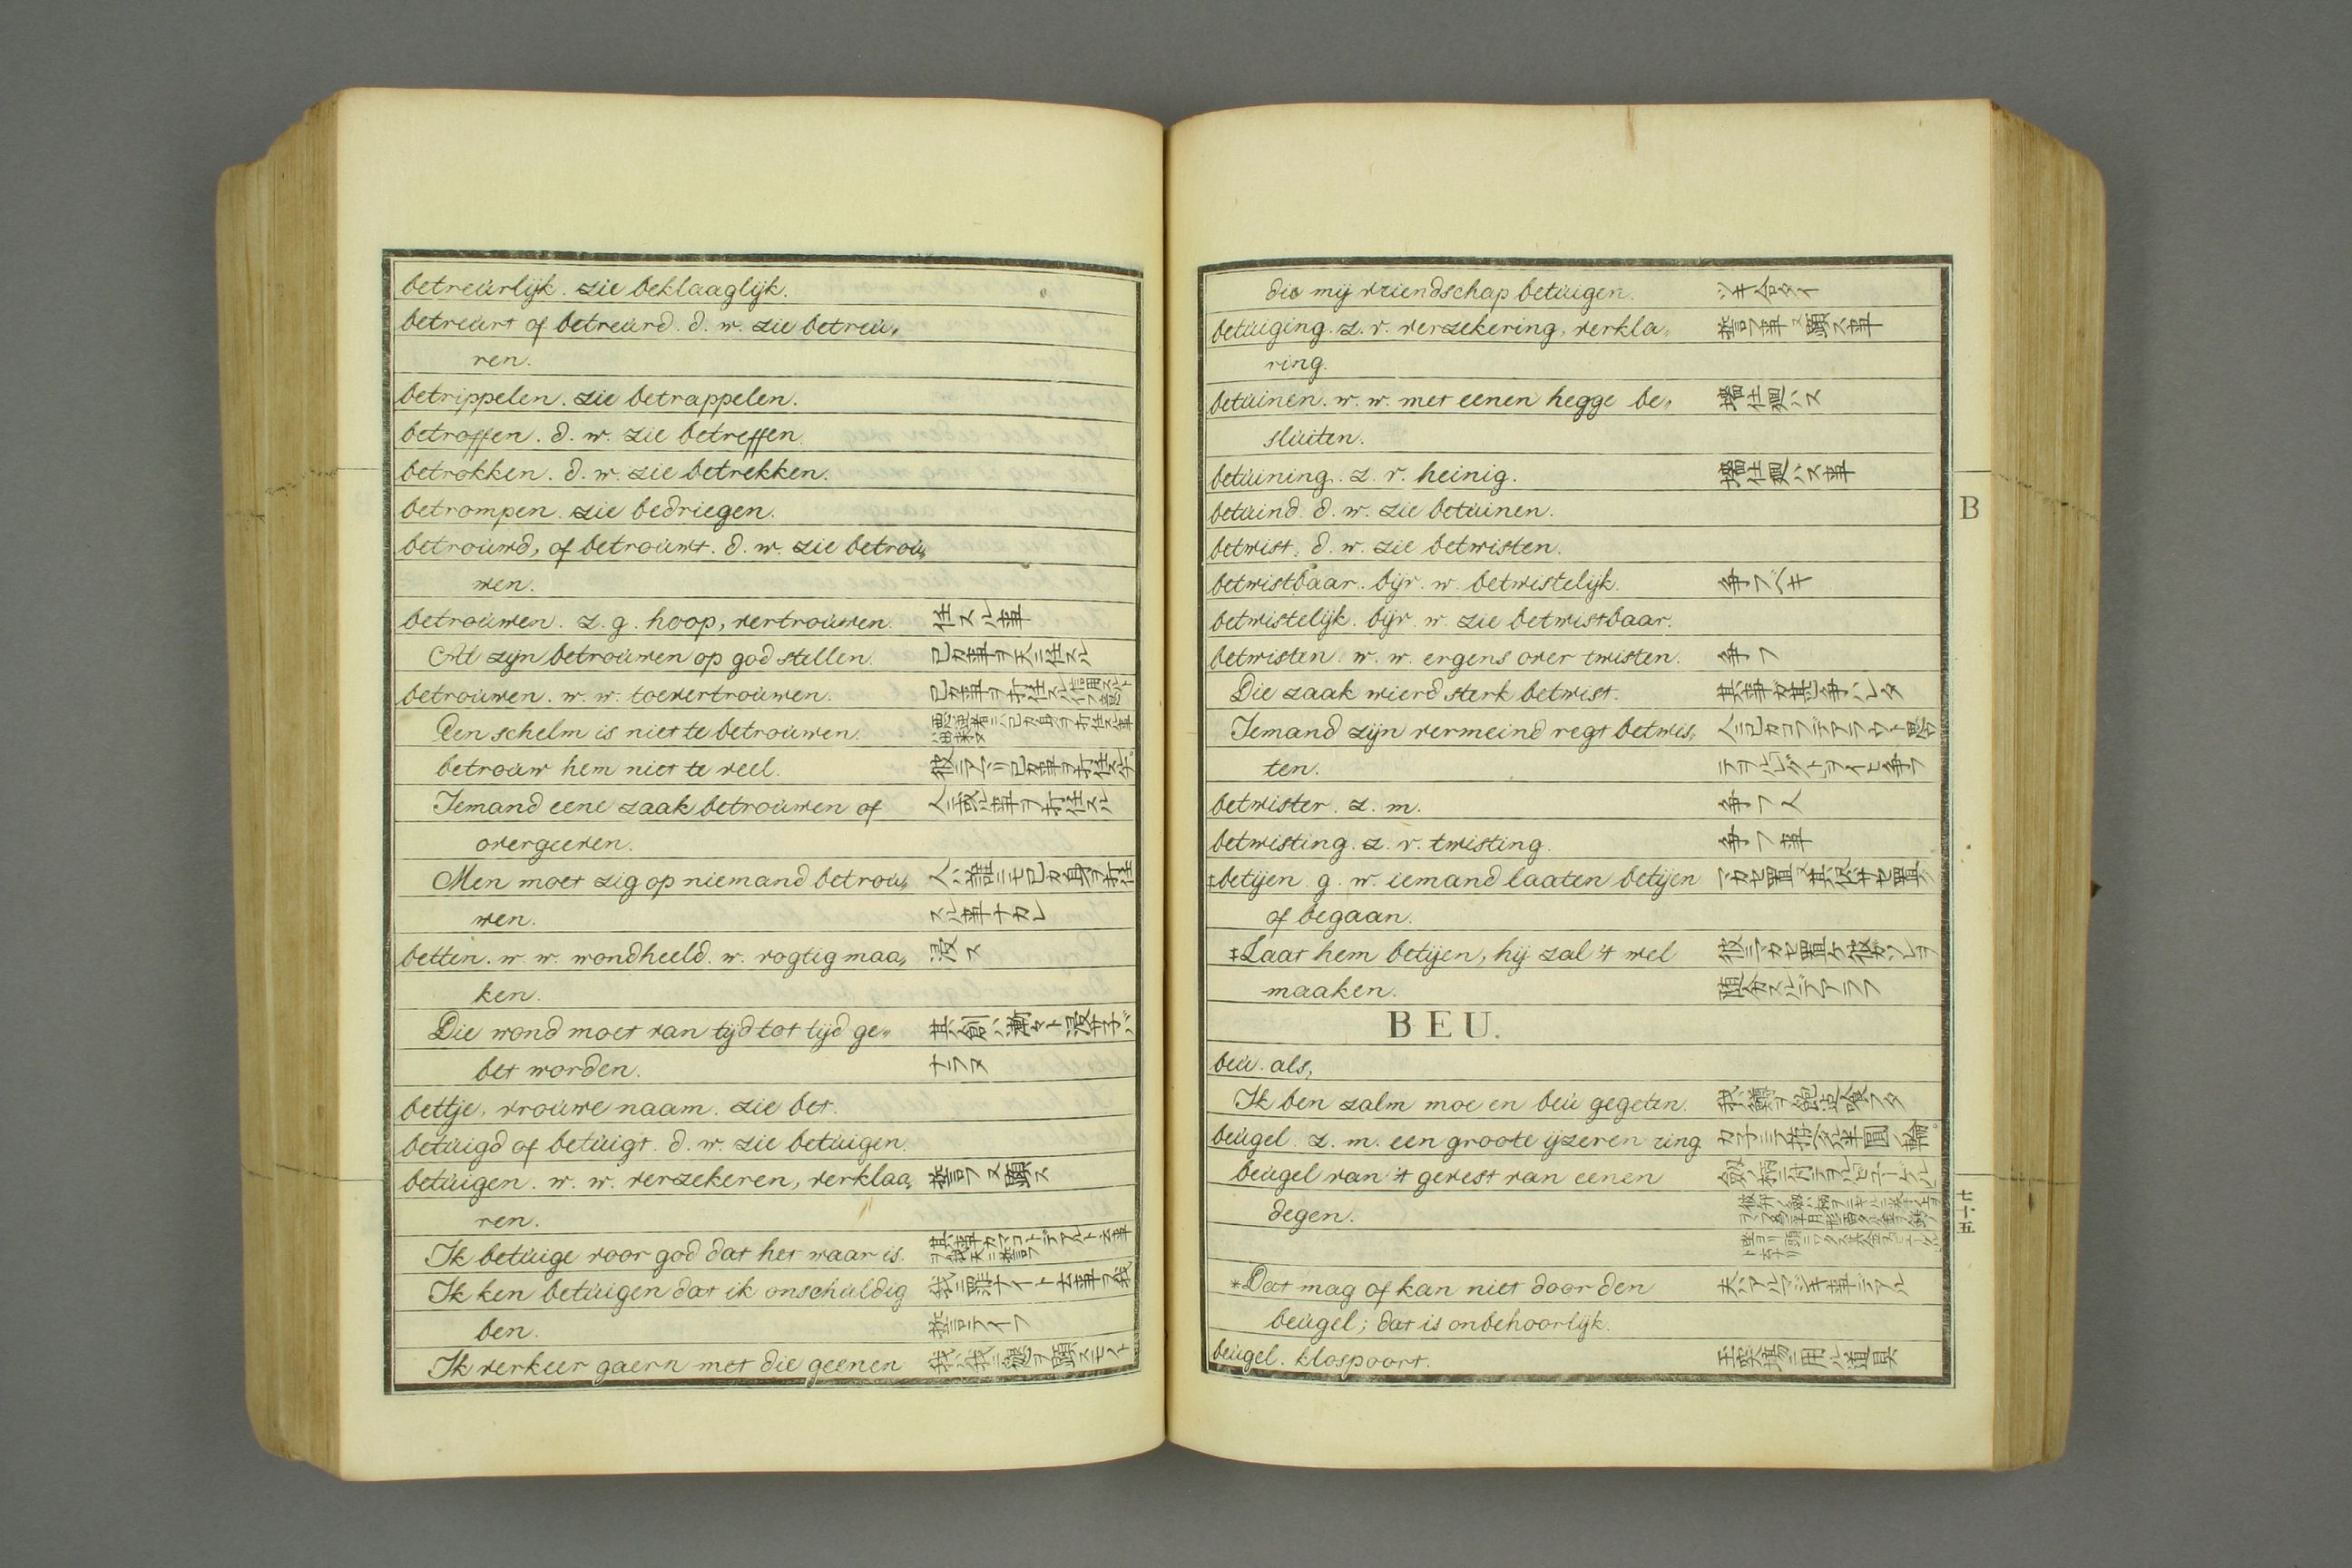 betreürlijk. zie beklaaglijk.
betreürt of betreürd. d. w. zie betreü„
ren.
betrippelen. zie betrappelen.
betroffen. d. w. zie betreffen.
betrokken. d. w. zie betrekken.
betrompen. zie bedriegen.
betroüwd, of betroüwt. d. w. zie betroü„
wen.
betroüwen. z. g. hoop, vertroüwen. 任スル事
Al zijn betroüwen op god stellen. 己カ事ヲ天ニ任スル
betroüwen. w. w. toevertroüwen. 己カ事ヲ打任スル
Een schelm is niet te betroüwen.
betroüw hem niet te veel.
Iemand eene zaak betroüwen of 人ニ或ル事ヲ打任スル
overgeeven.
Men moet zig op niemand betroü„ 人ハ誰ニモ己カ身ヲ打任
wen. スル事ナカレ
betten. w. w. wondheeld. w. vogtig maa„ 浸ス
ken.
Die wond moet van tijd tot tijd ge„ 其創ハ漸々ト浸サ子バ
bet worden. ナラヌ
bettje, vroüwe naam. zie bet.
betüigd of betüigt. d. w. zie betüigen.
betüigen. w. w. verzekeren, verklaa„ 誓フ又顕ス
ren.
Ik betüige voor god dat het waar is. 其事カマコトデアルト云事ヲ我天ニ誓フ
Ik ken betüigen dat ik onschüldig 我ニ罪ナイト云事ヲ我
ben. 誓テイフ
Ik verkeer gaern met die geenen
die mij vriendschap betüigen. ツキ合タイ
betüiging. z. v. verzekering, verkla„ 誓フ事又顕ス事
ring.
betüinen. w. w. met eenen hegge be„ 墻仕廻ハス
slüiten.
betüining. z. v. heinig. 墻仕廻ハス事
betüind. d. w. zie betüinen.
betwist. d. w. zie betwisten.
betwistbaar. bijv. w. betwistelijk. 争フベキ
betwistelijk. bijv. w. zie betwistbaar.
betwisten. w. w. ergens over twisten. 争フ
Die zaak wierd sterk betwist. 其事カ甚争ハレタ
Iemand zijn vermeind regt betwis„
ten.
betwister. z. m. 争フ人
betwisting. z. v. twisting. 争フ事
‡betijen. g. w. iemand laaten betijen
of begaan.
‡Laat hem betijen, hij zal 't wel
maaken.
BEU.
beü. als,
Ik ben zalm moe en beü gegeten.
beügel. z. m. een groote ijzeren ring
beügel van 't gevest van eenen
degen.
*Dat mag of kan niet door den 夫ハアルマジキ事デアル
beügel; dat is onbehoorlijk.
beügel. klospoort. 玉突場ニ用ル道具
B
七十五